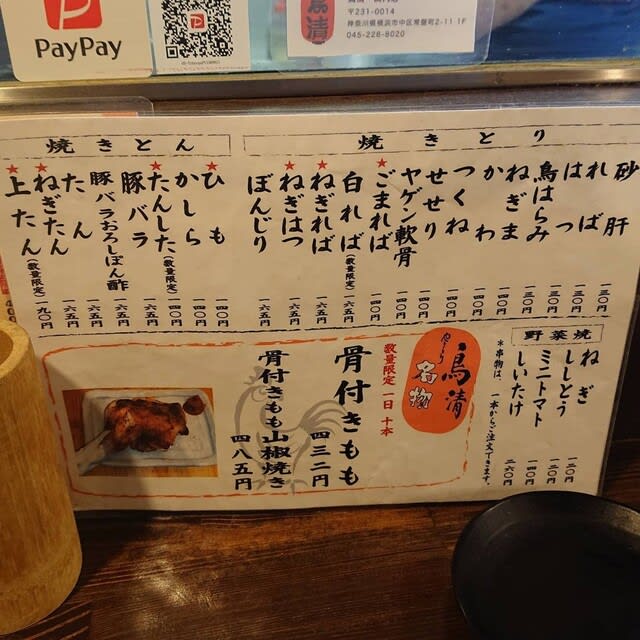 PayPay
鳥清
〒231-0014
神奈川県横浜市中区常盤町2-11 1F
045-228-8020
焼きとり
砂肝 一三〇円
ればー 一三〇円
はつ 一三〇円
鳥はらみ 一三〇円
ねぎま 一四〇円
かわ 一四〇円
つくね 一四〇円
せせり 一四〇円
ヤゲン軟骨 一四〇円
★ごまれば 一四〇円
白れば(数量限定) 一六五円
★ねぎれば 一六五円
★ねぎはつ 一六五円
ぼんじり 一六五円
焼きとん
★ひも 一四〇円
かしら 一四〇円
★たんした(数量限定) 一四〇円
豚バラ 一六五円
豚バラおろしぽん酢 一六五円
たん 一六五円
★ねぎたん 一六五円
★上たん(数量限定) 一九〇円
野菜焼
ねぎ 一二〇円
ししとう 一二〇円
ミニトマト 一四〇円
しいたけ 二六〇円
*串物は、一本からご注文できます。
鳥清
名物
数量限定 一日十本
骨付きもも 四三二円
骨付きもも山椒焼き 四八五円